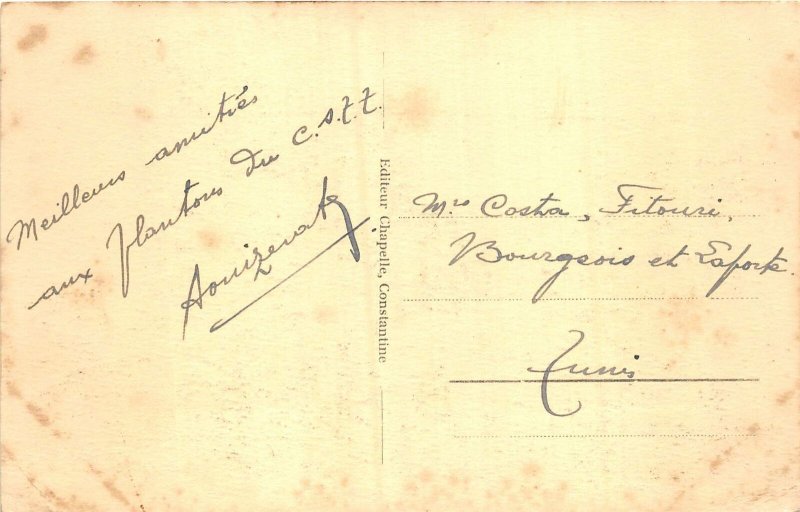 Meilleurs amitiés
aux plantons du C.S.T.T.
Editeur Chapelle, Constantine
Mrs Costa, Fitouri,
Bourgeois et Laporte.
Tunis